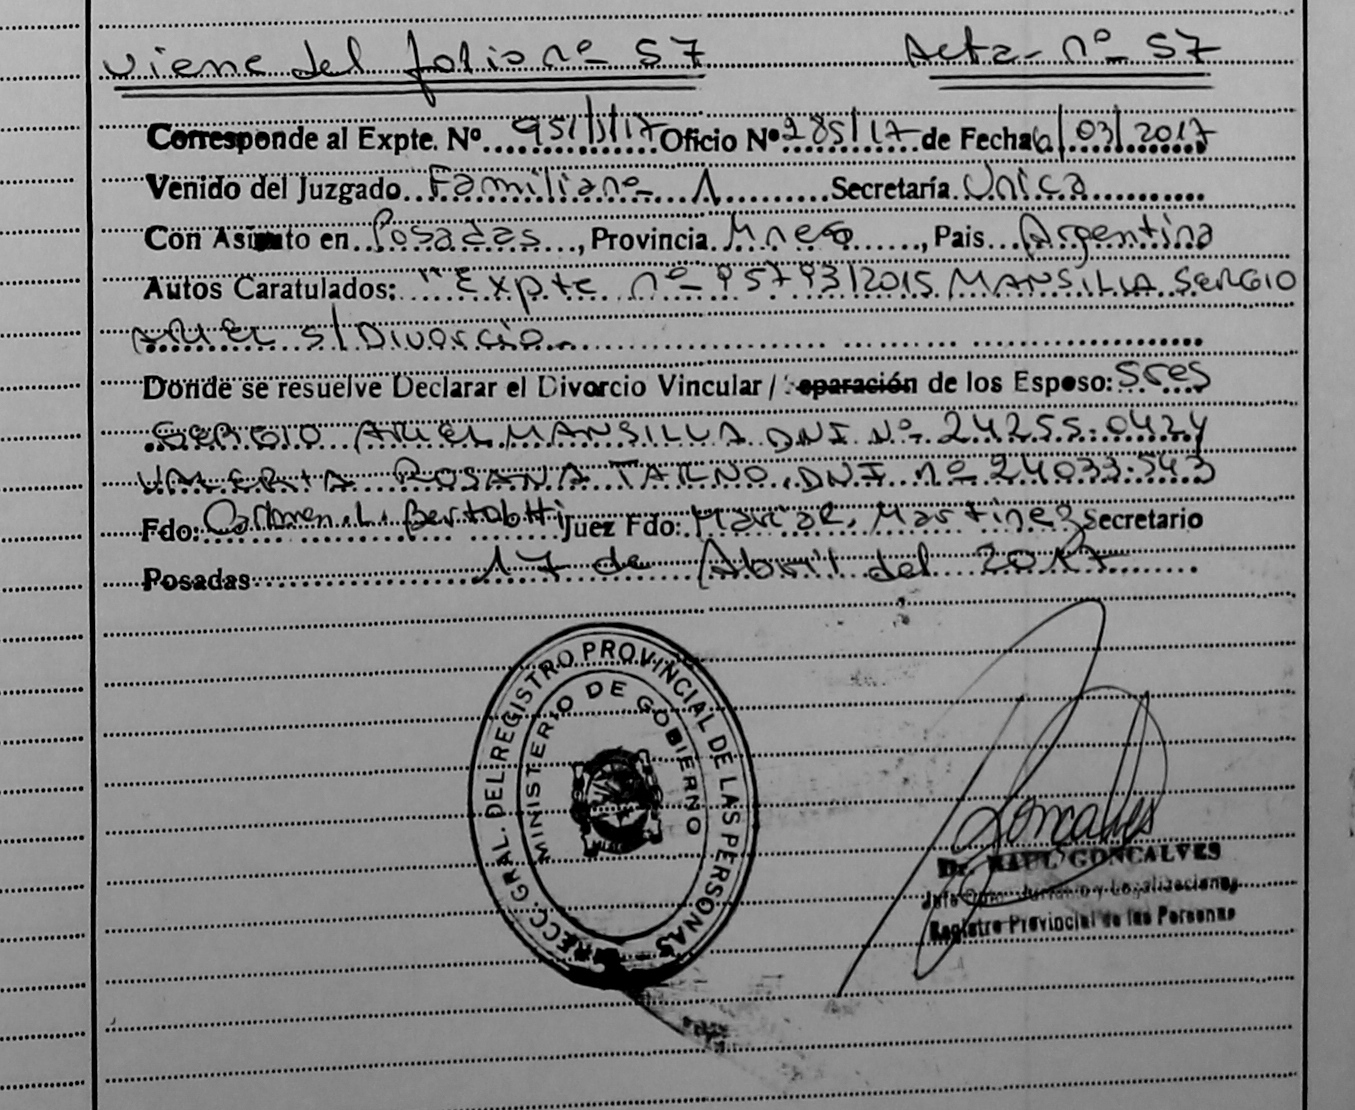 viene del folio nº 57 Acta nº 57
Corresponde al Expte. Nº 951/J/17 Oficio Nº 285/17 de Fecha 6/03/2017
Venido del Juzgado Familia nº 1 Secretaría Única
Con Asiento en Posadas, Provincia Mnes, Pais Argentina
Autos Caratulados: "Expte nº 95793/2015 MANSILLA SERGIO
ARIEL s/ Divorcio
Donde se resuelve Declarar el Divorcio Vincular / Separación de los Esposo: Sres
SERGIO ARIEL MANSILLA DNI Nº 24255.042 y
VALERIA ROSANA DNI nº 24033.543
Fdo: Carmen L. Bertolotti Juez Fdo: Martinez Secretario
Posadas 17 de Abril del 2017
DIRECC. GRAL. DEL REGISTRO PROVINCIAL DE LAS PERSONAS
MINISTERIO DE GOBIERNO
Goncalves
Dr. RAUL GONCALVES
y Legalizaciones
Registro Provincial de las Personas